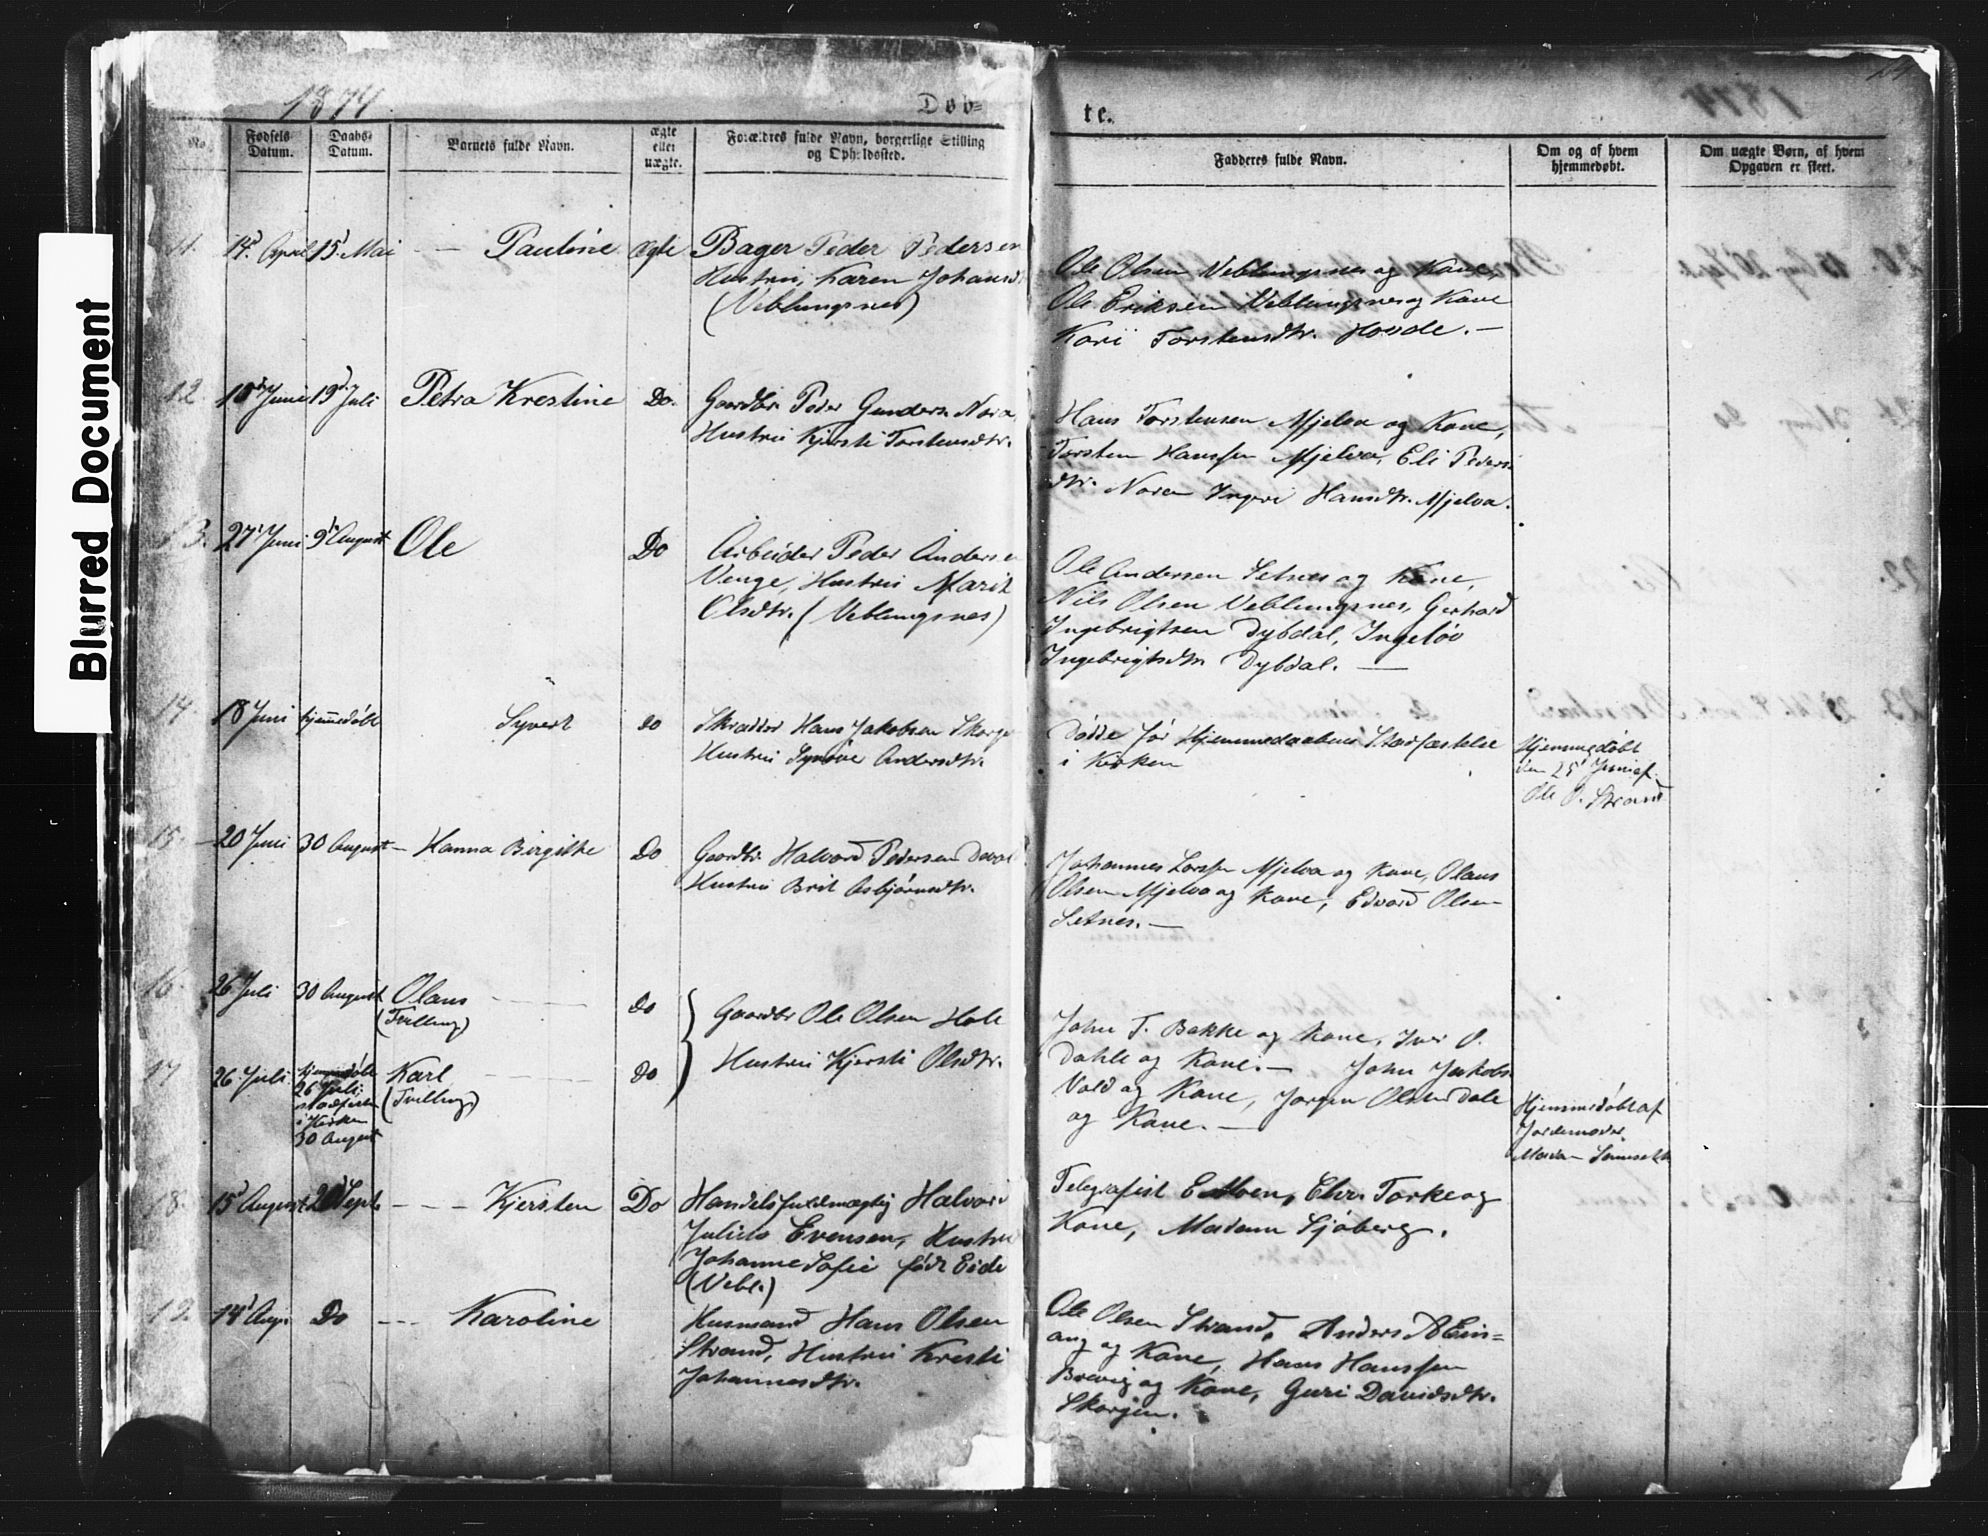 Blurred Document
1874
Døb=
te.
1874
No.
Fødsels Datum.
Daabs-Datum.
Barnets fulde Navn.
ægte eller uægte.
Forældres fulde Navn, borgerlige Stilling og Opholdssted.
Fadderes fulde Navn.
Om og af hvem hjemmedøbt.
Om uægte Børn, af hvem Opgaven er skeet.
11. 14' April 15' Mai — Pauline ægte Bager Peder Pedersen
Hustru, Karen Johansd
(Veblungsnes)
Ole Olsen Veblungsnes og Kone,
Ole Eriksen Veblungsnes og Kone
Kari Torstensdtr. Hovde. —
12. 18de Juni 19d. Juli Petra Krestine Do. Gaardbr. Peder Gunders. Nora
Hustru Kjersti Torstensdtr.
Hans Torstensen Mjelva og Kone,
Torsten Hansen Mjelva, Eli Peders
dtr. Noren Ingeri Hansdtr. Mjelva.
13. 27' Juni 9' August Ole Do Arbeider Peder Anders
Venge, Hustru Marit
Olsdtr. (Veblungsnes)
Ole Andersen Setnes og Kone,
Nils Olsen Veblungsnes, Gerhard
Ingebrigtsen Dybdal, Ingeløv
Ingebrigtsdtr Dybdal. —
14. 18 Juni hjemmedøbt Syvert do Skrædder Hans Jakobsen Skorge
Hustru Synøve Andersdtr.
Døde før Hjemmedaabens Stadfæstelse
i Kirken
Hjemmedøbt
den 25' Juni af
Ole O. Strand
15. 20 Juni 30 August — Hanna Birgithe Do Gaardbr. Halvord Pedersen
Hustru Brit Asbjørnsdtr.
Johannes Larssen Mjelva og Kone, Olaus
Olsen Mjelva og Kone, Edvard Olsen
Setnes. —
16. 26 Juli 30 August Olaus Do
(Tvilling)
Gaardbr Ole Olsen Hole
Hustru Kjersti Olsdtr.
17. 26 Juli hjemmedøbt
26 Juli,
stadfæstet
i Kirken
30 August
Karl Do
(Tvilling)
John T. Bakke og Kone, Iver O.
Dahle og Kone. — John Jakobs
Vold og Kone, Jørgen Olsen Dale
og Kone. —
Hjemmedøbt af
Jordemoder
Madam
18. 15' August 20' Sept. — — — Kjersten Do Handelsfuldmægtig Halvor
Julius Evensen, Hustru
Johanne Sofie født Eide
(Vebl.)
Telegrafist E. Moen, Chr. Torke og
Kone, Madam Sjøberg.
19. 14' Aug. Do — — Karoline Husmand Hans Olsen
Strand, Hustru Kresti
Johannesdtr.
Ole Olsen Strand, Anders A Ein=
ang og Kone, Hans Hanssen
Brevig og Kone, Guri Davidsdtr.
Skorgen.